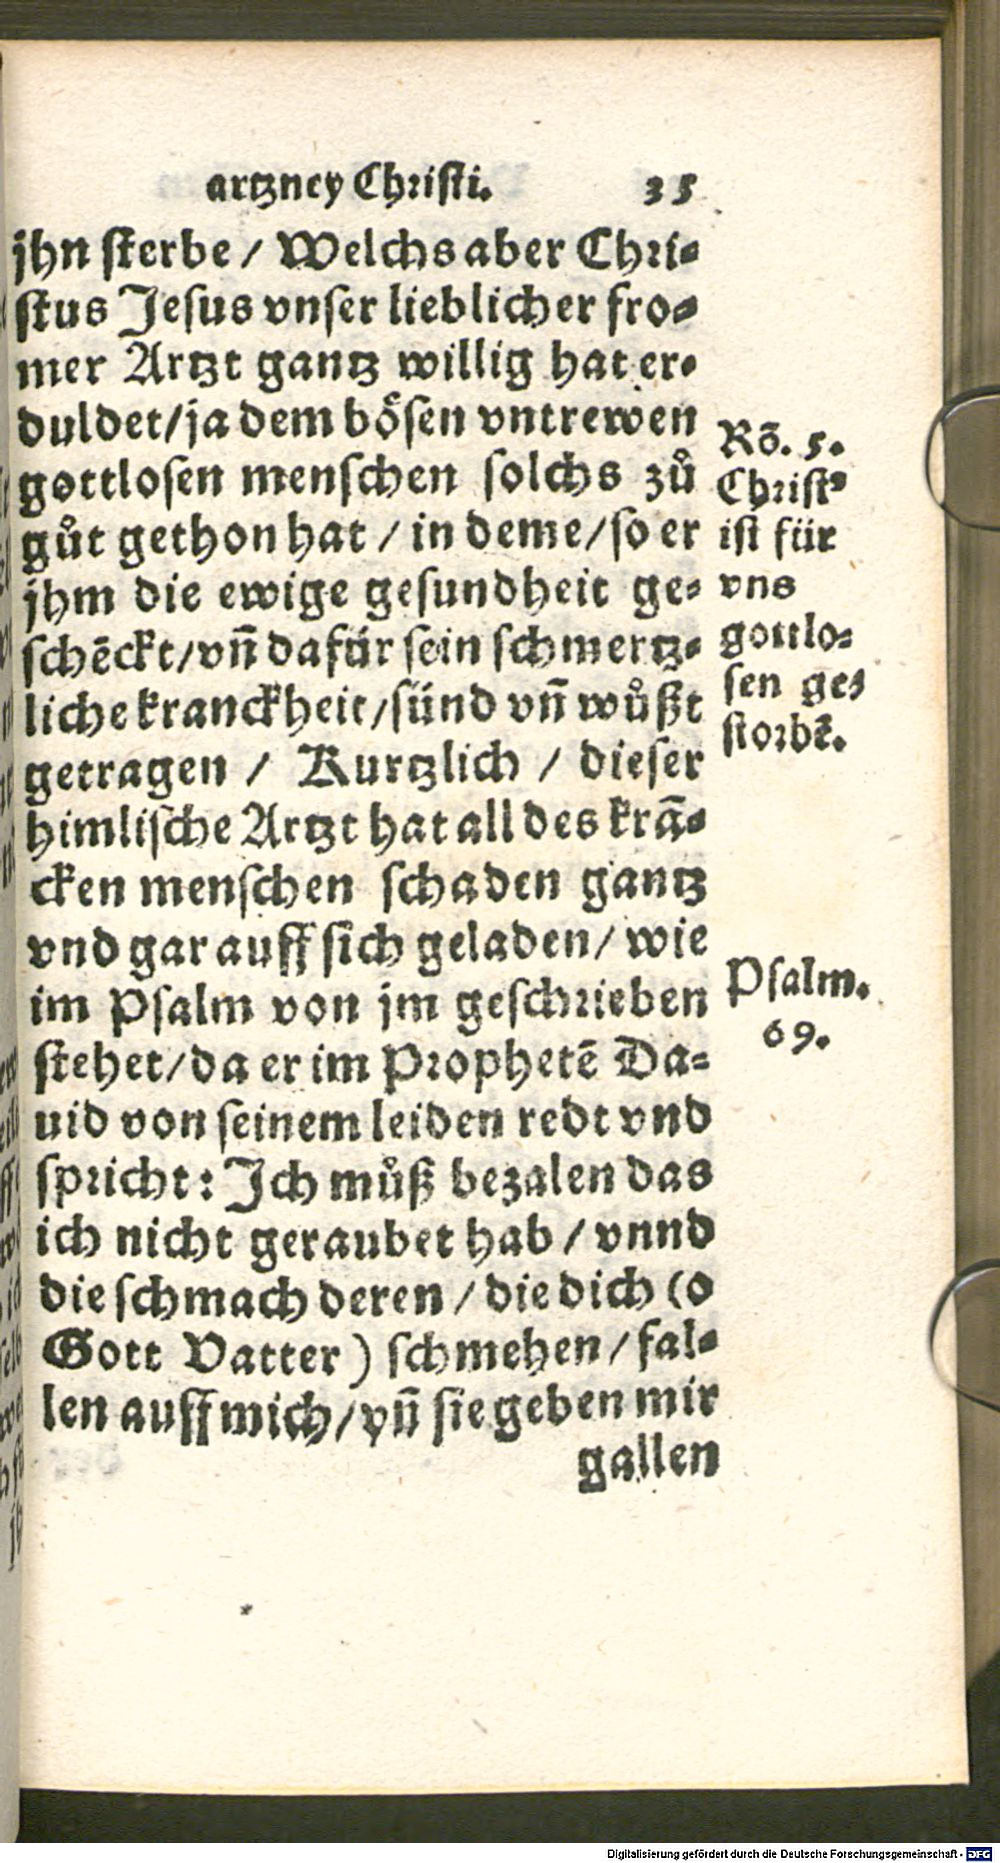 artzney Christi. 35
jhn sterbe / Welchs aber Chri-
stus Jesus vnser lieblicher fro-
mer Artzt gantz willig hat er-
duldet/ja dem bösen vntrewen
gottlosen menschen solchs zů
gůt gethon hat / in deme/so er
jhm die ewige gesundheit ge-
schēckt/vñ dafür sein schmertz-
liche kranckheit/sünd vñ wůßt
getragen / Kurtzlich / dieser
himlische Artzt hat all des krā-
cken menschen schaden gantz
vnd gar auff sich geladen/ wie
im Psalm von jm geschrieben
stehet/da er im Prophetē Da-
uid von seinem leiden redt vnd
spricht: Ich můß bezalen das
ich nicht geraubet hab / vnnd
die schmach deren / die dich (o
Gott Vatter) schmehen/ fal-
len auff mich/vñ sie geben mir
gallen
Rō. 5.
Christꝰ
ist für
vns
gottlo-
sen ge-
storbē.
Psalm.
69.
Digitalisierung gefördert durch die Deutsche Forschungsgemeinschaft - DFG